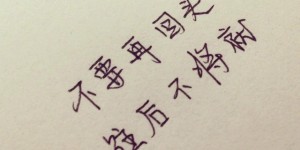 不要再回头
往后不将就